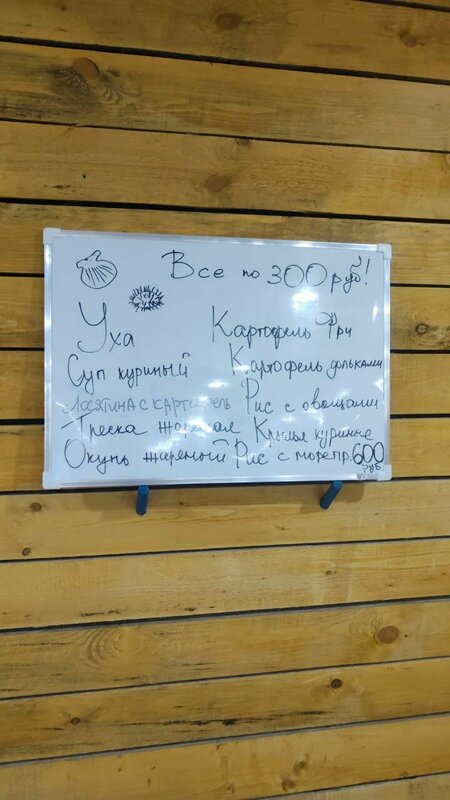 Все по 300 руб!
Уха Картофель Фри
Суп куриный Картофель дольками
Лосятина с картофель Рис с овощами
Треска жареная Крылья куринные
Окунь жареный Рис с морепр. 600 руб.